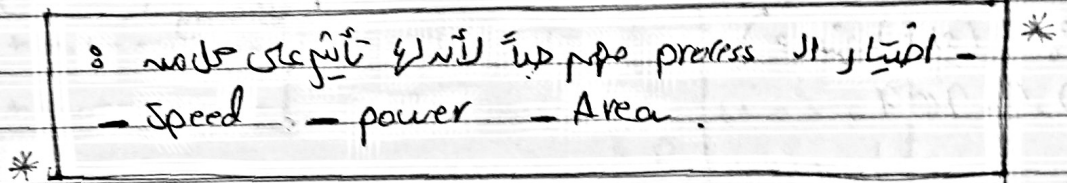 - اختيار ال process مهم جداً لأن لها تأثير على كل من :
- Speed - power - Area.